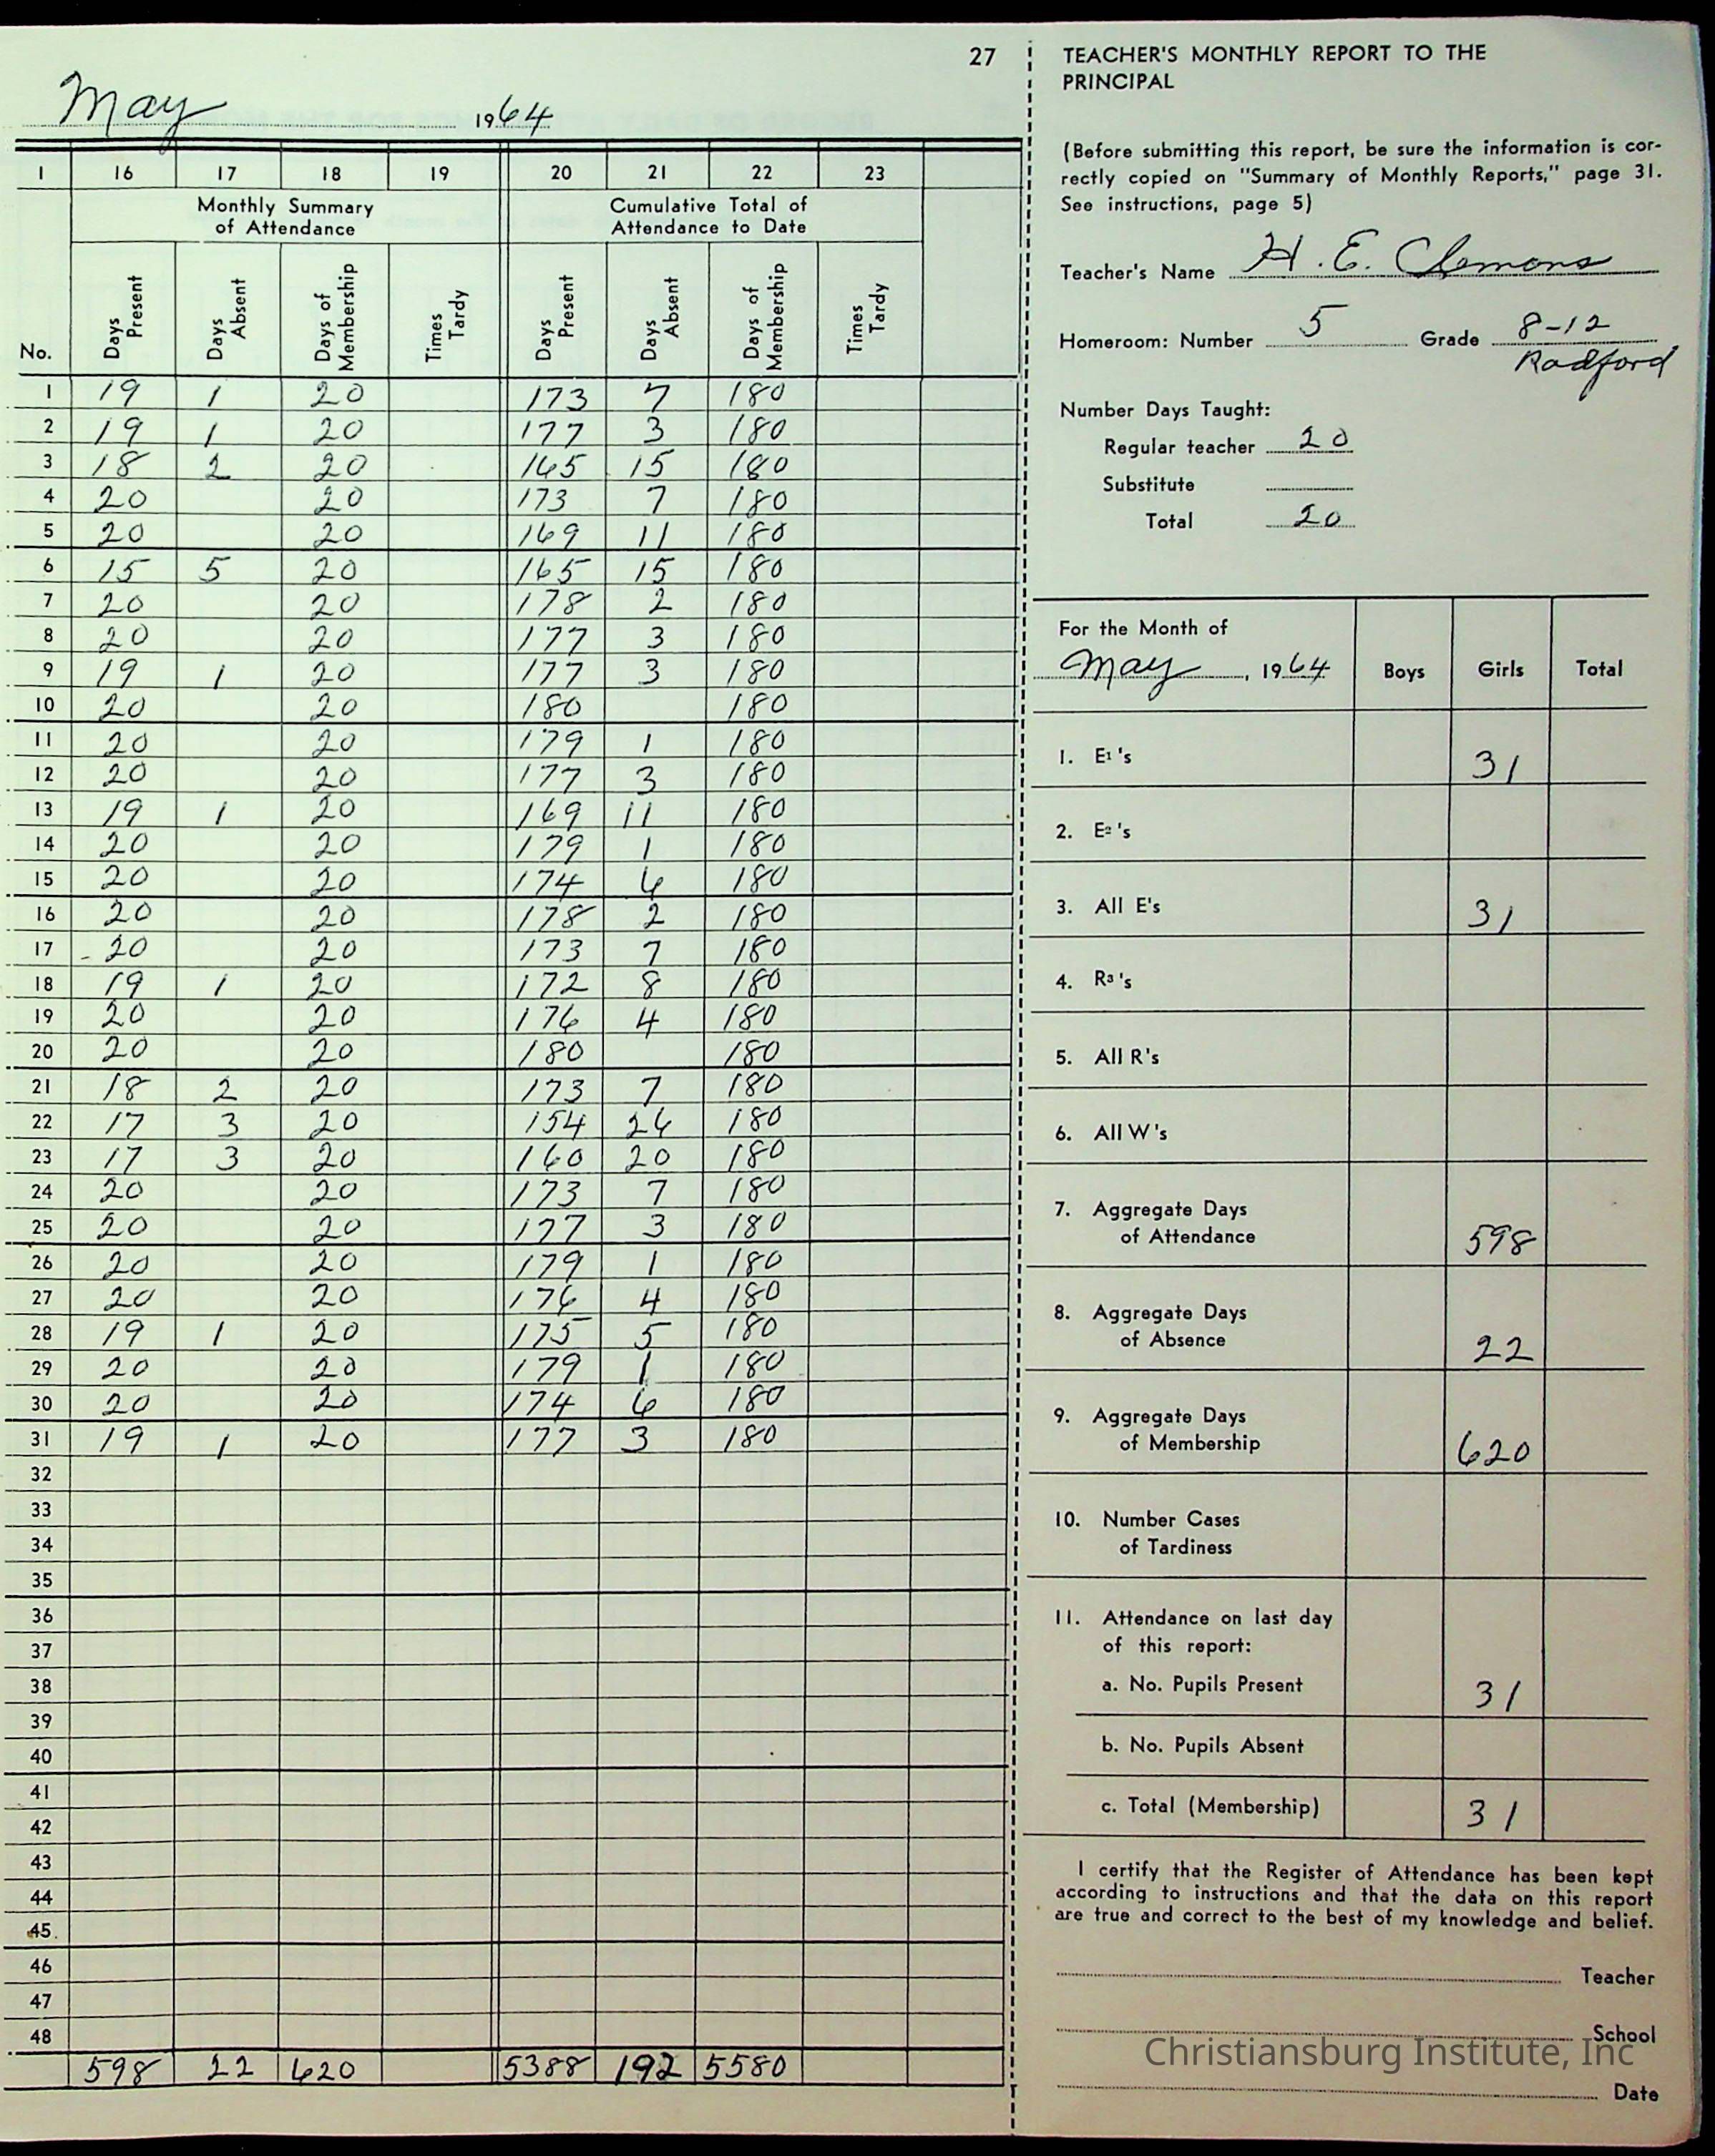 27
May 1964
1 16 17 18 19 20 21 22 23
Monthly Summary of Attendance Cumulative Total of Attendance to Date
No. Days Present Days Absent Days of Membership Times Tardy Days Present Days Absent Days of Membership Times Tardy
1 19 1 20 173 7 180
2 19 1 20 177 3 180
3 18 2 20 165 15 180
4 20 20 173 7 180
5 20 20 169 11 180
6 15 5 20 165 15 180
7 20 20 178 2 180
8 20 20 177 3 180
9 19 1 20 177 3 180
10 20 20 180 180
11 20 20 179 1 180
12 20 20 177 3 180
13 19 1 20 169 11 180
14 20 20 179 1 180
15 20 20 174 6 180
16 20 20 178 2 180
17 20 20 173 7 180
18 19 1 20 172 8 180
19 20 20 176 4 180
20 20 20 180 180
21 18 2 20 173 7 180
22 17 3 20 154 26 180
23 17 3 20 160 20 180
24 20 20 173 7 180
25 20 20 177 3 180
26 20 20 179 1 180
27 20 20 176 4 180
28 19 1 20 175 5 180
29 20 20 179 1 180
30 20 20 174 6 180
31 19 1 20 177 3 180
32
33
34
35
36
37
38
39
40
41
42
43
44
45
46
47
48
598 22 620 5388 192 5580
TEACHER'S MONTHLY REPORT TO THE
PRINCIPAL
(Before submitting this report, be sure the information is cor-
rectly copied on "Summary of Monthly Reports," page 31.
See instructions, page 5)
Teacher's Name H. E. Clemons
Homeroom: Number 5 Grade 8-12
Radford
Number Days Taught:
Regular teacher 20
Substitute
Total 20
For the Month of
May, 1964 Boys Girls Total
1. E1's 31
2. E2's
3. All E's 31
4. R3's
5. All R's
6. All W's
7. Aggregate Days
of Attendance 598
8. Aggregate Days
of Absence 22
9. Aggregate Days
of Membership 620
10. Number Cases
of Tardiness
11. Attendance on last day
of this report:
a. No. Pupils Present 31
b. No. Pupils Absent
c. Total (Membership) 31
I certify that the Register of Attendance has been kept
according to instructions and that the data on this report
are true and correct to the best of my knowledge and belief.
Teacher
School
Christiansburg Institute, Inc
Date